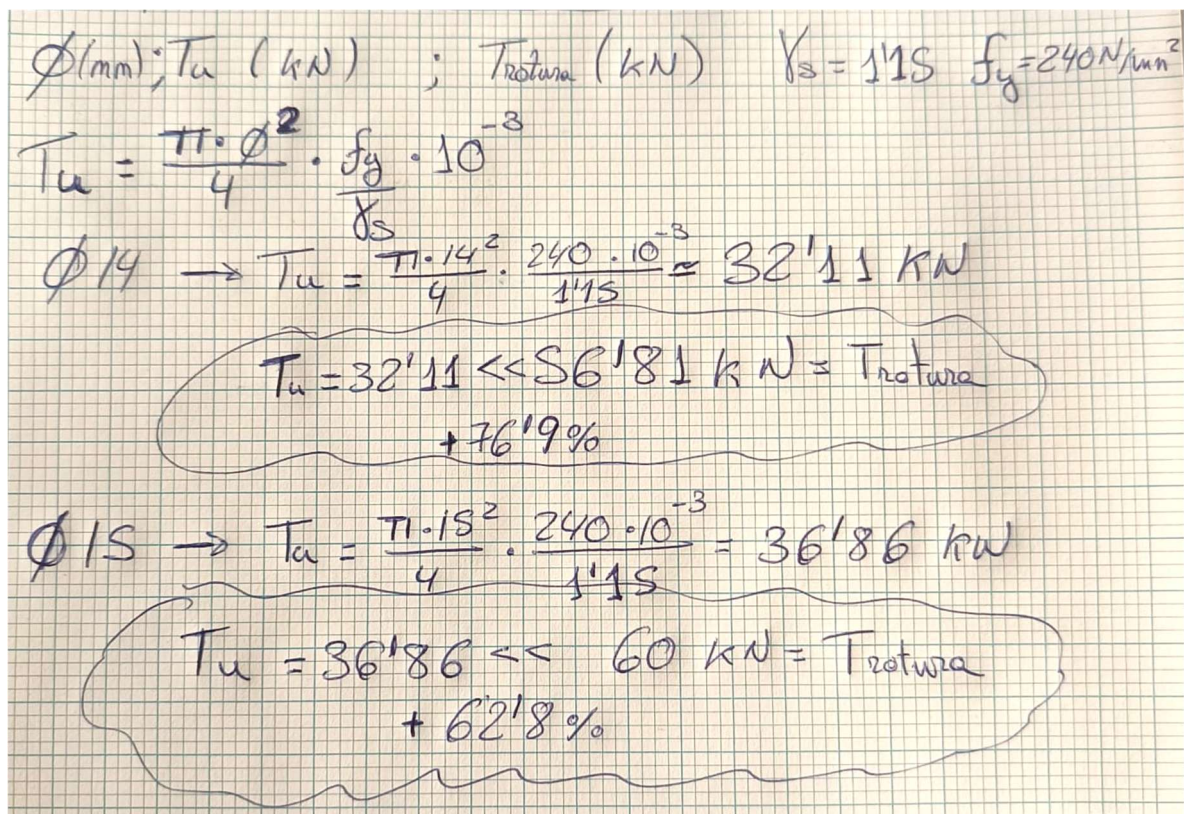 Ø(mm); Tu (kN) ; Trotura (kN) γs = 1'15 fy = 240 N/mm²
Tu = π·Ø²/4 · fy/γs · 10⁻³
Ø14 → Tu = π·14²/4 · 240·10⁻³/1'15 ≈ 32'11 KN
Tu = 32'11 << 56'81 kN = Trotura
+76'9%
Ø15 → Tu = π·15²/4 · 240·10⁻³/1'15 = 36'86 kN
Tu = 36'86 << 60 kN = Trotura
+ 62'8%